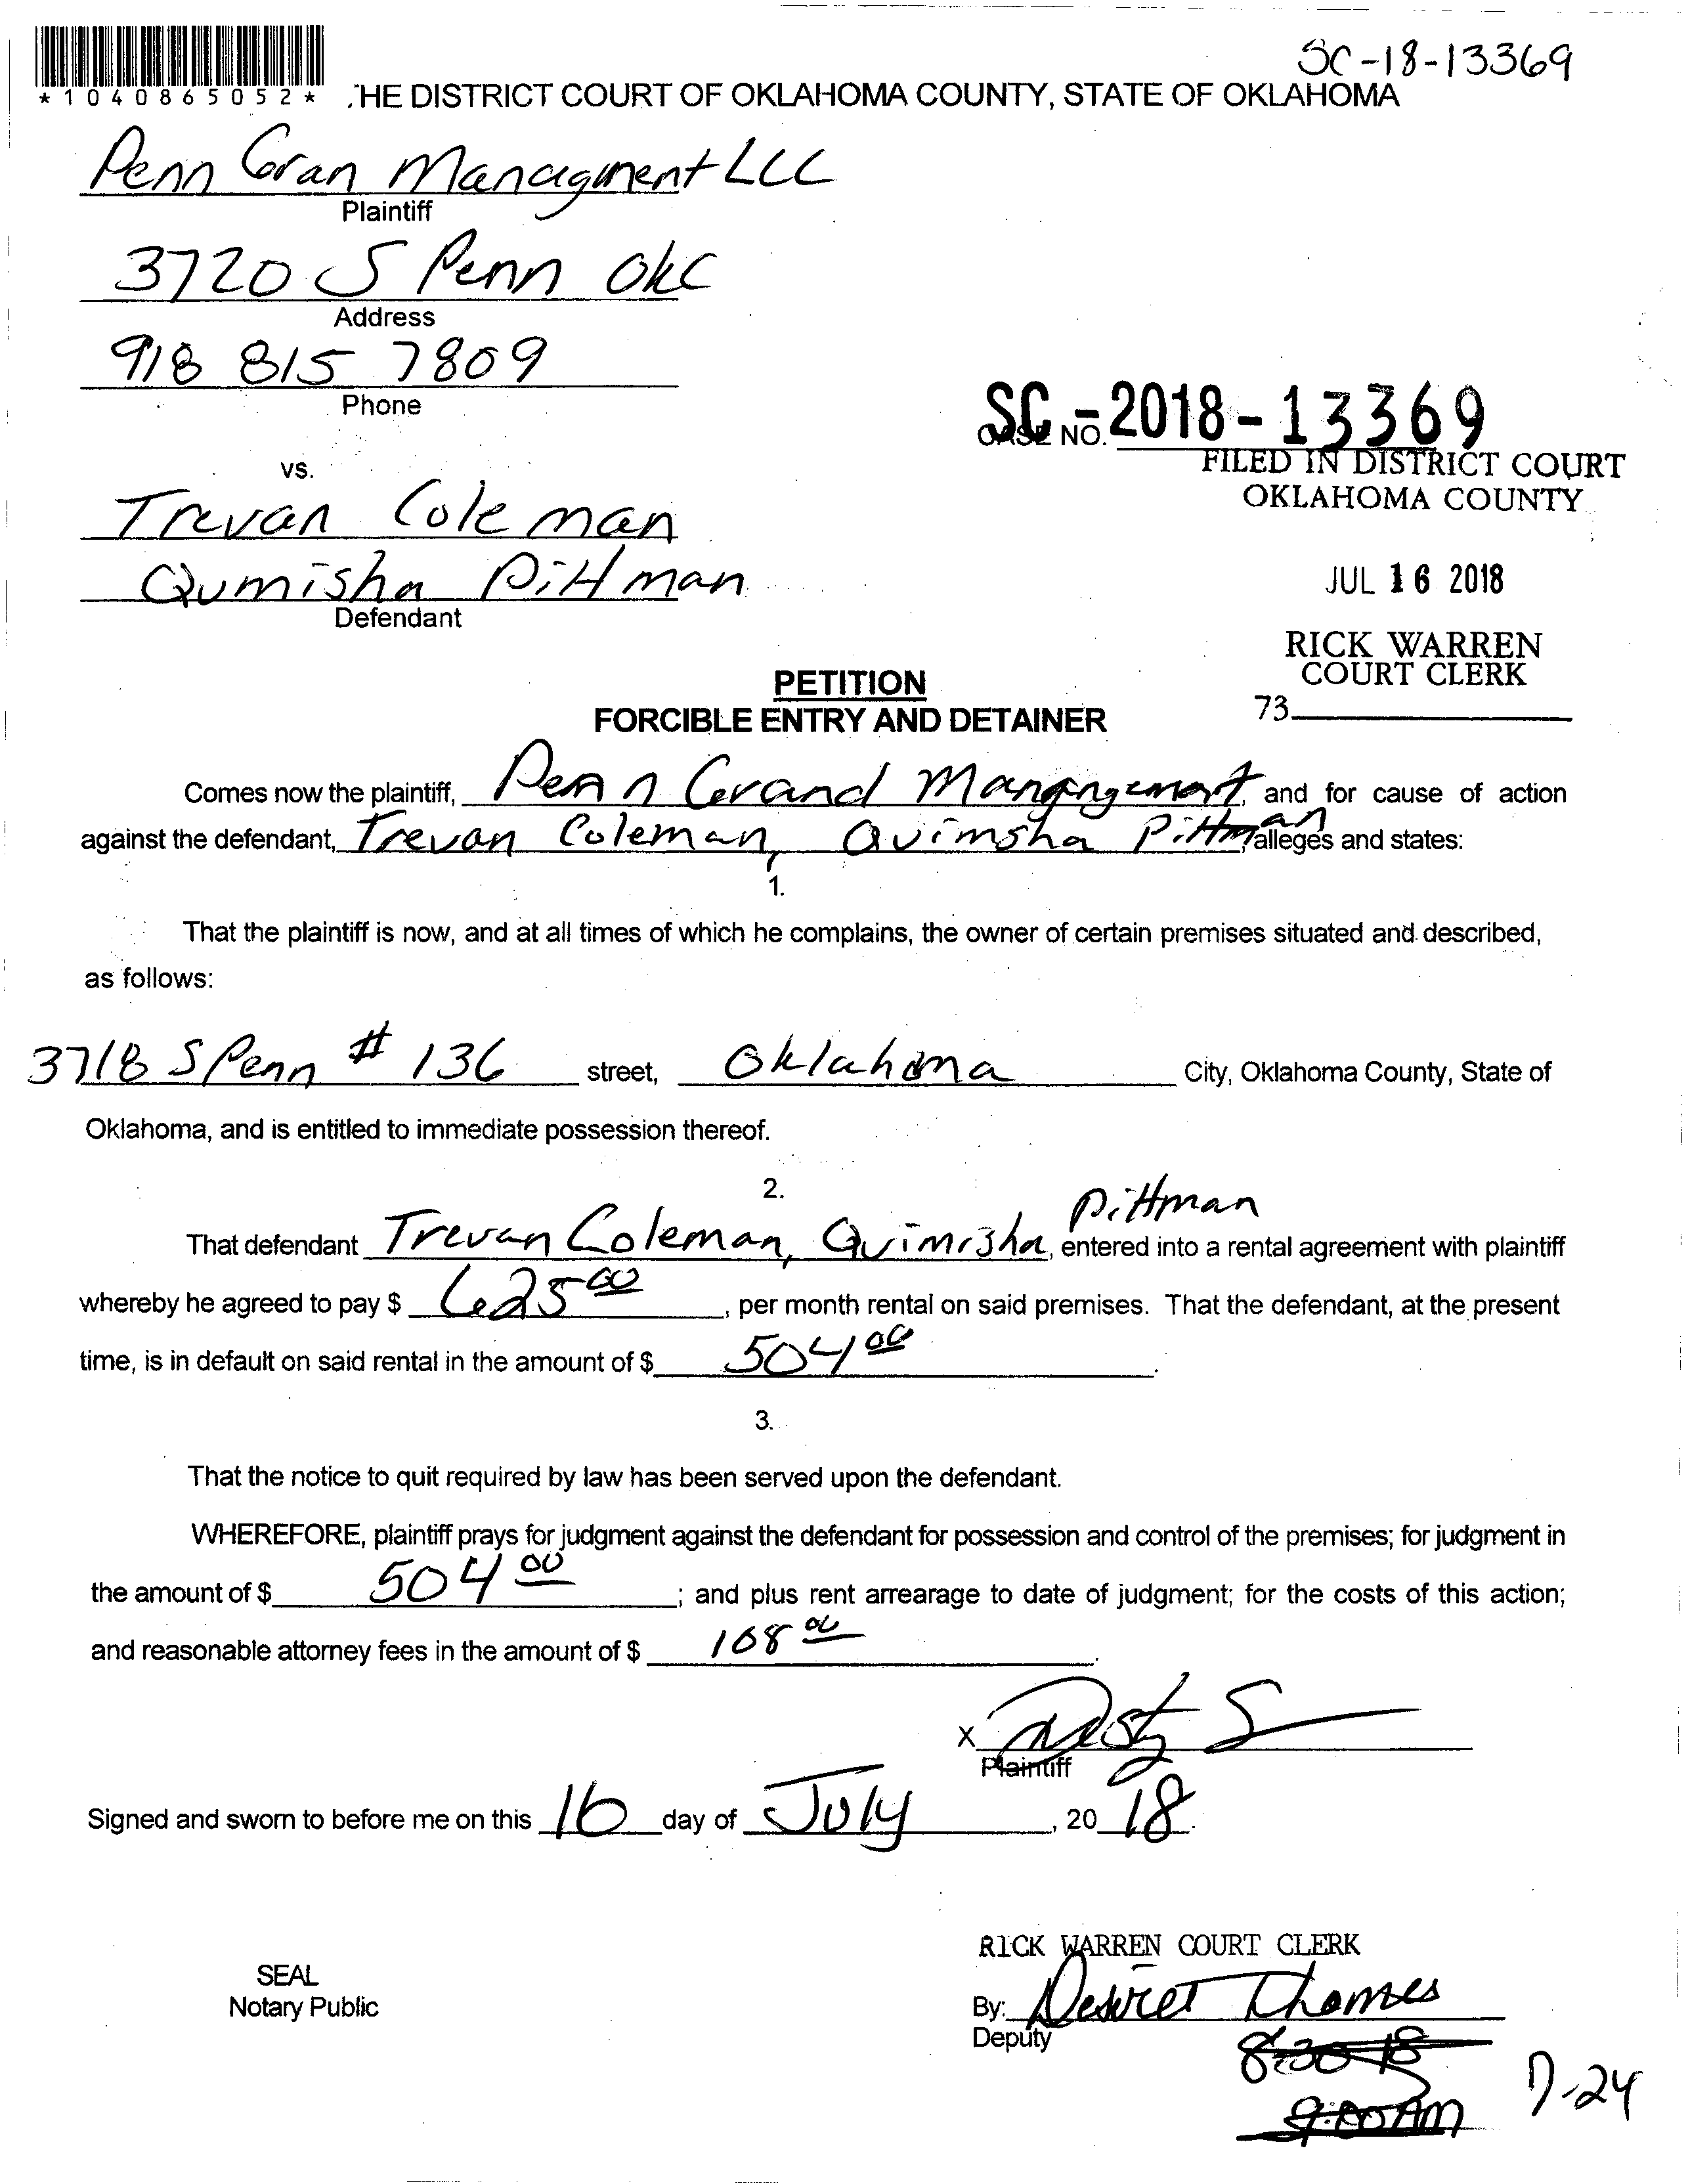 SC-18-13369
*1040865052*
THE DISTRICT COURT OF OKLAHOMA COUNTY, STATE OF OKLAHOMA
Penn Gran Managment LLC
Plaintiff
3720 S Penn OKC
Address
918 815 7809
Phone
SC-2018-13369
CASE NO.
FILED IN DISTRICT COURT
OKLAHOMA COUNTY
vs.
Trevan Coleman
Qumisha Pittman
Defendant
JUL 16 2018
RICK WARREN
COURT CLERK
73
PETITION
FORCIBLE ENTRY AND DETAINER
Comes now the plaintiff, Penn Grand Manangement, and for cause of action
against the defendant, Trevan Coleman, Quimsha Pittman, alleges and states:
1.
That the plaintiff is now, and at all times of which he complains, the owner of certain premises situated and described,
as follows:
3718 S Penn # 136 street, Oklahoma City, Oklahoma County, State of
Oklahoma, and is entitled to immediate possession thereof.
2.
Pittman
That defendant Trevan Coleman, Quimisha, entered into a rental agreement with plaintiff
whereby he agreed to pay $ 625 00, per month rental on said premises. That the defendant, at the present
time, is in default on said rental in the amount of $ 504 00.
3.
That the notice to quit required by law has been served upon the defendant.
WHEREFORE, plaintiff prays for judgment against the defendant for possession and control of the premises; for judgment in
the amount of $ 504 00; and plus rent arrearage to date of judgment; for the costs of this action;
and reasonable attorney fees in the amount of $ 168 00.
X
Plaintiff
Signed and sworn to before me on this 16 day of July, 2018.
RICK WARREN COURT CLERK
SEAL
Notary Public
By: Desiret Thomas
Deputy
8-30-18
9:00 AM
7-24